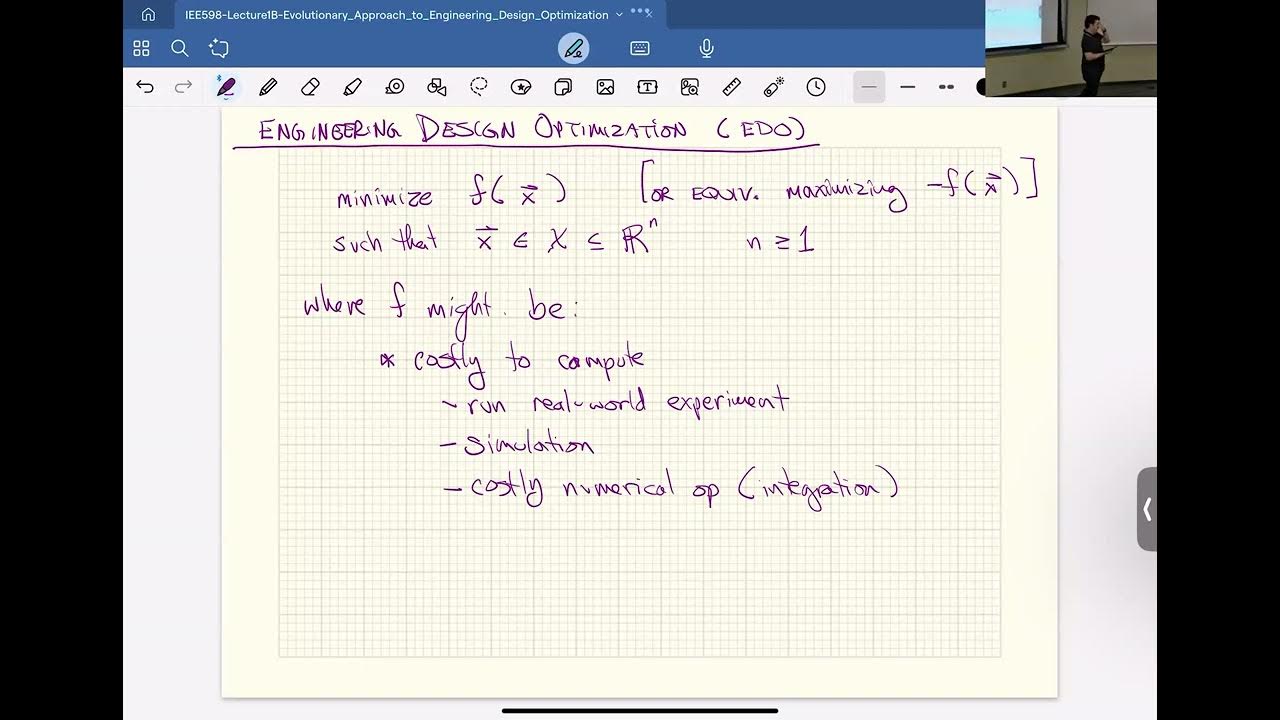 IEE598-Lecture1B-Evolutionary_Approach_to_Engineering_Design_Optimization
ENGINEERING DESIGN OPTIMIZATION (EDO)
minimize f(x⃗) [OR EQUIV. maximizing -f(x⃗)]
such that x⃗ ∈ X ⊆ ℝⁿ n ≥ 1
where f might be:
* costly to compute
- run real-world experiment
- simulation
- costly numerical op (integration)